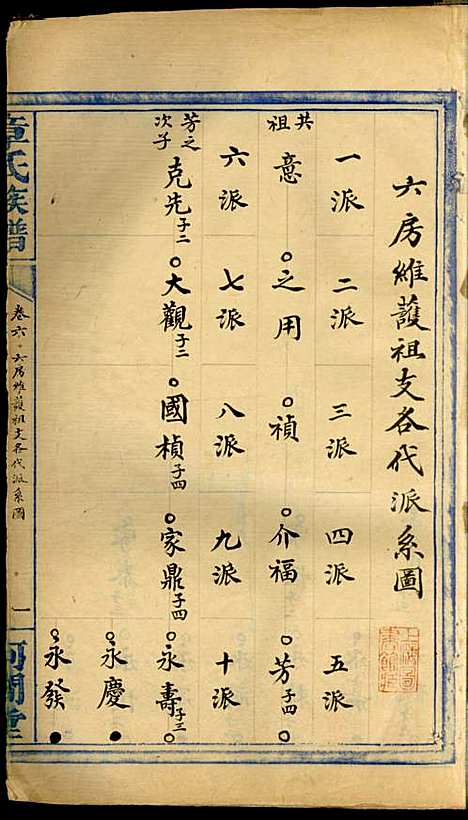 六房維護祖支各代派系圖
一派 二派 三派 四派 五派
共祖 意 之用 禎 介福 芳子四
六派 七派 八派 九派 十派
芳之次子 克先子二 大觀子三 國楨子四 家鼎子四 永壽子三
永慶
永發
章氏族譜 卷六·六房維護祖支各代派系圖 一 河間堂